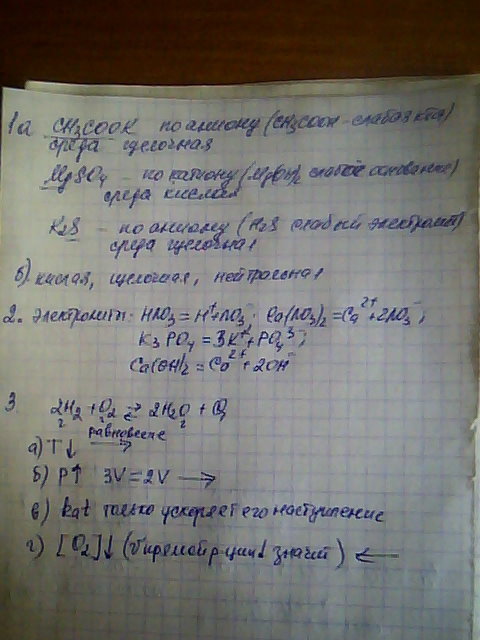 1а CH3COOK по аниону (CH3COOH - слабая к-та)
среда щелочная
MgSO4 - по катиону (Mg(OH)2 слабое основание)
среда кислая
K2S - по аниону (H2S слабый электролит)
среда щелочная
б) кислая, щелочная, нейтральная
2. Электролиты: HNO3 = H⁺ + NO3⁻; Ca(NO3)2 = Ca²⁺ + 2NO3⁻;
K3PO4 = 3K⁺ + PO4³⁻;
Ca(OH)2 = Ca²⁺ + 2OH⁻
3
2H2 + O2 ⇄ 2H2O + Q
г г г
равновесие
а) T↓ →
б) P↑ 3V = 2V →
в) kat только ускоряет его наступление
г) [O2]↓ ( ↓ значит) ←